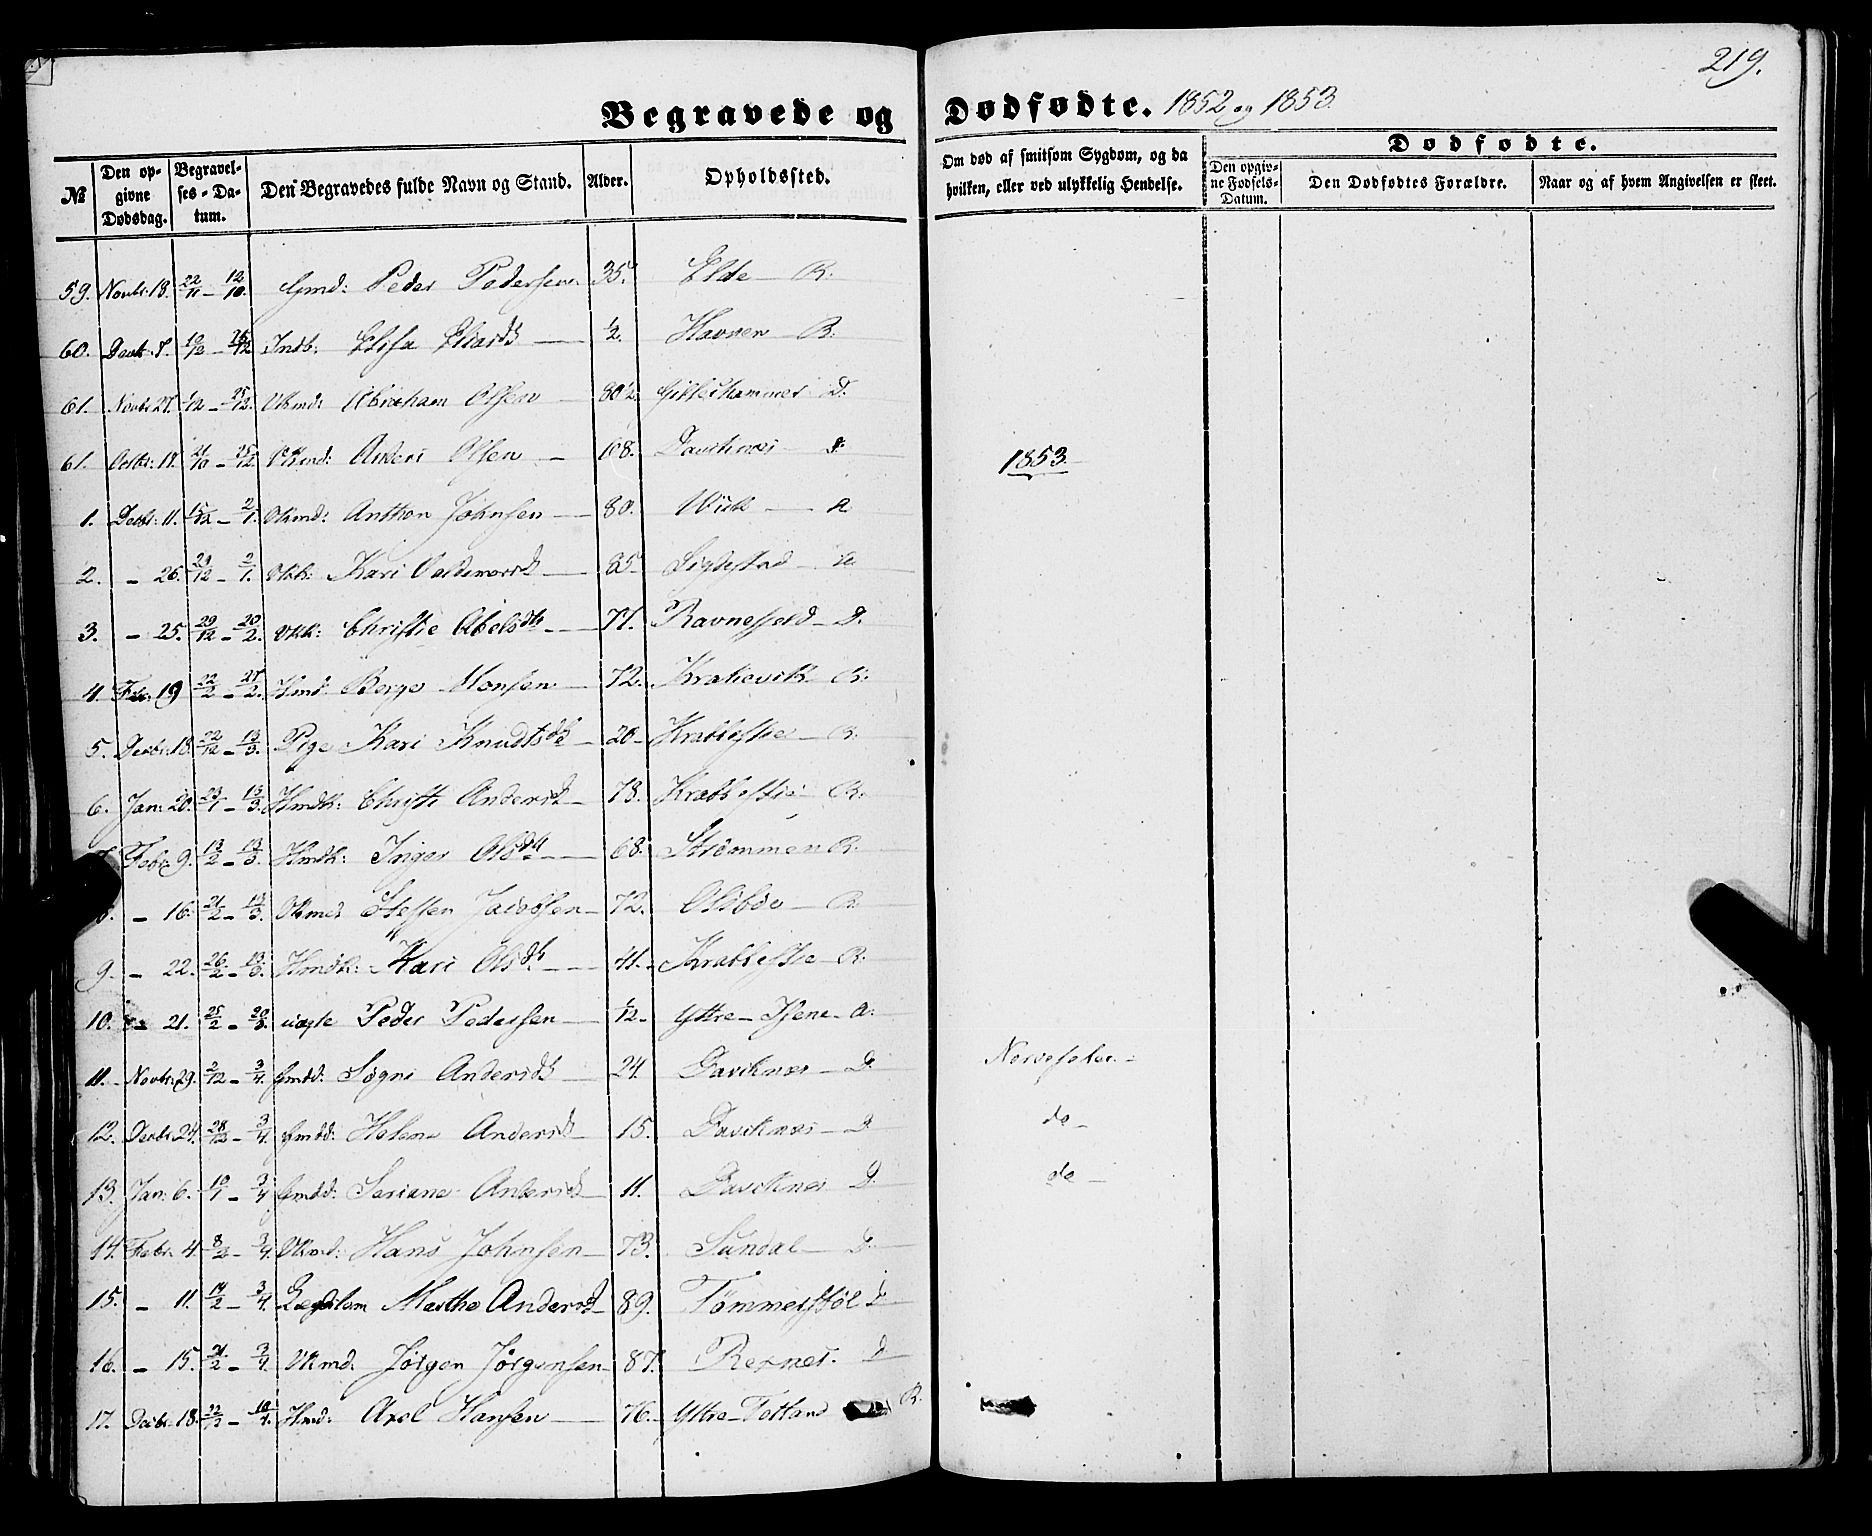 219.
Begravede og Dødfødte. 1852 og 1853.
№ Den opgivne Dødsdag. Begravelses-Datum. Den Begravedes fulde Navn og Stand. Alder. Opholdssted. Om død af smitsom Sygdom, og da hvilken, eller ved ulykkelig Hendelse. Dødfødte.
Den opgivne Fødsels-Datum. Den Dødfødtes Forældre. Naar og af hvem Angivelsen er skeet.
59. Novbr: 18. 22/11 - 12/10. Gmd: Peder Pedersen 35. Elde R:
60. Decbr: 8. 12/12 - 26/12 Indb: Elisa 1/2. Havnen R:
61. Novbr 27. 1/12 - 25/12. Vkmd: Abraham Olsen 80 1/2. D.
61. Octbr: 17. 21/10 - 25/12 Vkmd: Anders Olsen 68. Davicknæs D.
1853.
1. Decbr: 11. 15/12 - 2/1. Vkmd: Anthon Johnsen 80. Viik
2. - 26. 29/12 - 2/1. Vkk: Kari 85. 
3. - 25. 29/12 - 20/2. Vkk: Christie Abelsdtr 77. Ravnefjeld D.
4. Febr: 19 22/2 - 27/2. Hmd: Berge Monsen 72. R:
5. Decbr: 18. 22/12 - 13/3. Pige Kari Knudtsdtr 20. Krabbestie R:
6. Jan: 20. 23/1 - 13/3. Hmdk: Christi Andersdtr 78. Krabbestie R:
Febr: 9. 13/2 - 13/3. Hmdk: Inger Olsdtr 68. Strømmen R:
- 16. 21/2 - 13/3. Vkmd Steffen Jacobsen 72. R:
9. - 22. 26/2 - 13/3. Hmdk: Kari Olsdtr 41. Krabbestie R:
10. - 21. 25/2 - 20/3. uægte Peder Pedersen 1/12. Yttre-Isene
11. Novbr: 29. 2/12 - 3/4. Gmdd: Søgni Andersdtr 24. Davicknæs D. Nervefeber
12. Decbr: 24. 28/12 - 3/4. Gmdd: Helene Andersdtr 15. Davicknæs D do
13. Jan: 6. 10/1 - 3/4 Gmdd: Seriane Andersdtr 11. Davicknæs D. do
14. Febr: 4. 8/2 - 3/4. Vkmd: Hans Johnsen 73. Sundal D.
15. - 11. 14/2 - 3/4. Lægdslem Marthe Andersdtr 89. Tømmerstøl D
16. - 15. 21/2 - 3/4. Vkmd. Jørgen Jørgensen 87. Rexnes. D
17. Decbr: 18. 22/12 - 10/4. Hmd: Axel Hansen 76. Yttre-Totland R.